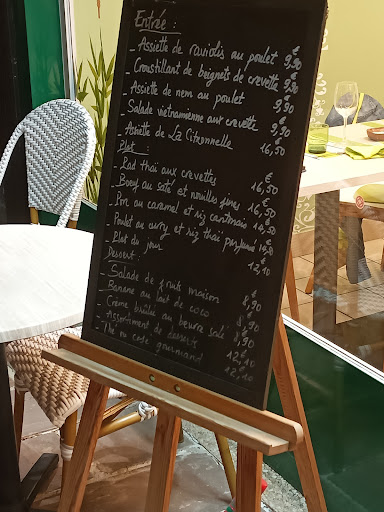 Entrée :
- Assiette de raviolis au poulet 9,90 €
- Croustillant de beignets de crevette 9,90 €
- Assiette de nem au poulet 9,90 €
- Salade vietnamienne aux crevette 9,90 €
- Assiette de La Citronnelle 16,50 €
Plat :
- Pad thaï aux crevettes 16,50 €
- Boeuf au saté et nouilles fines 16,50 €
- Porc au caramel et riz cantonais 14,50 €
- Poulet au curry et riz thaï parfumé 14,50 €
- Plat du jour 12,10 €
Dessert :
- Salade de fruits maison 8,90 €
- Banane au lait de coco 8,90 €
- Crème brûlée au beurre salé
- Assortiment de desserts 12,10 €
- Thé ou café gourmand 12,10 €